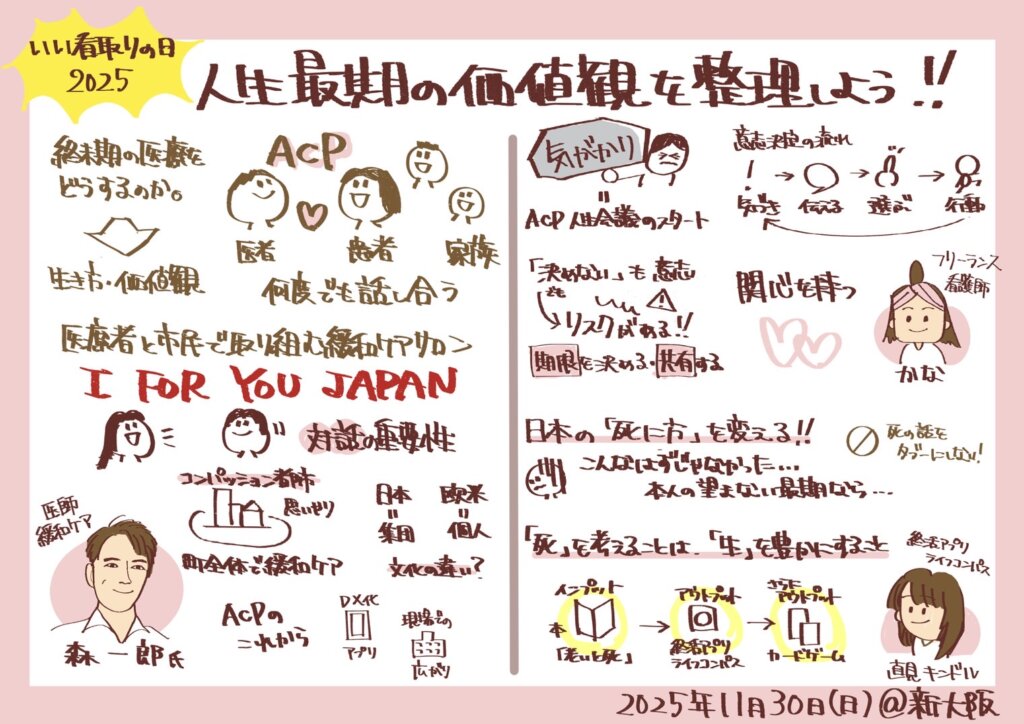 いい看取りの日
2025
人生最期の価値観を整理しよう!!
終末期の医療を
どうするのか。
生き方・価値観
ACP
医者 患者 家族
何度でも話し合う
医療者と市民で取り組む緩和ケアサロン
I FOR YOU JAPAN
対話の重要性
コンパッション都市
思いやり
町全体で緩和ケア
日本 欧米
= =
集団 個人
文化の違い?
医師
緩和ケア
森 一郎氏
ACPの
これから
DX化
アプリ
現場での
広がり
気がかり
=
ACP 人生会議のスタート
意志決定の流れ
! → → →
気づき 伝える 選ぶ 行動
「決めない」も意志
でも
リスクがある!!
期限を決める・共有する
関心を持つ
フリーランス
看護師
かな
日本の「死に方」を変える!!
こんなはずじゃなかった…
本人の望まない最期なら…
死の話を
タブーにしない!
「死」を考えることは、「生」を豊かにすること
インプット
本
「老いと死」
→
アウトプット
終活アプリ
ライフコンパス
→
さらに
アウトプット
カードゲーム
終活アプリ
ライフコンパス
直見 キンドル
2025年11月30日(日)@新大阪